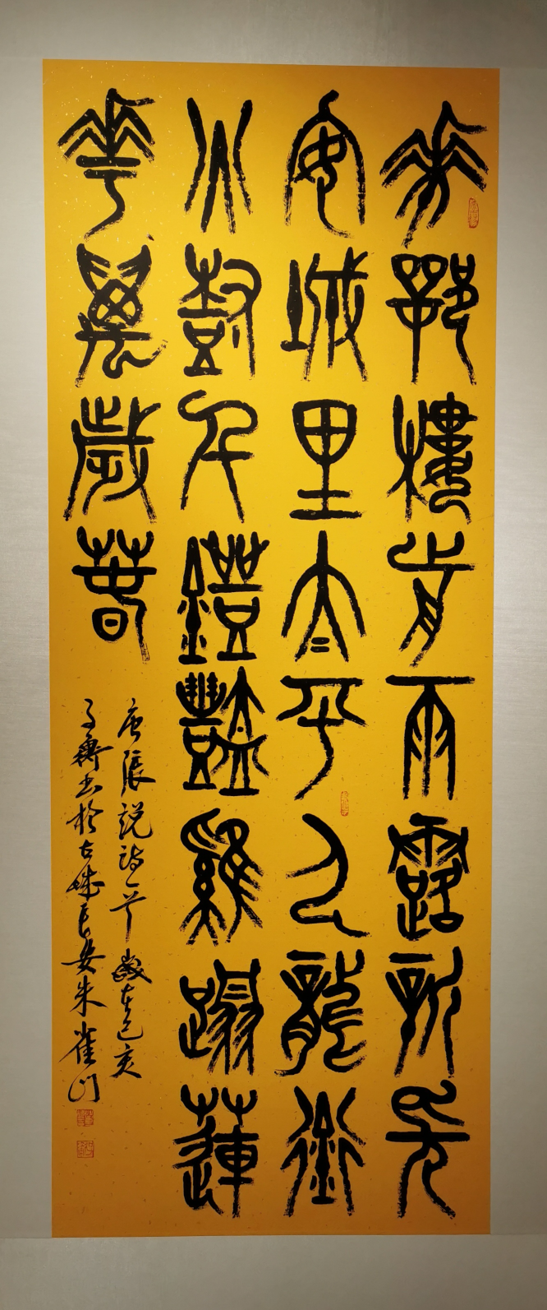 華鄂樓前雨露新長
安城里太平人龍銜
火樹千鐙豔雞蹋蓮
華萬歲春
唐張說詩一首歲在己亥
書於古城長安朱雀門